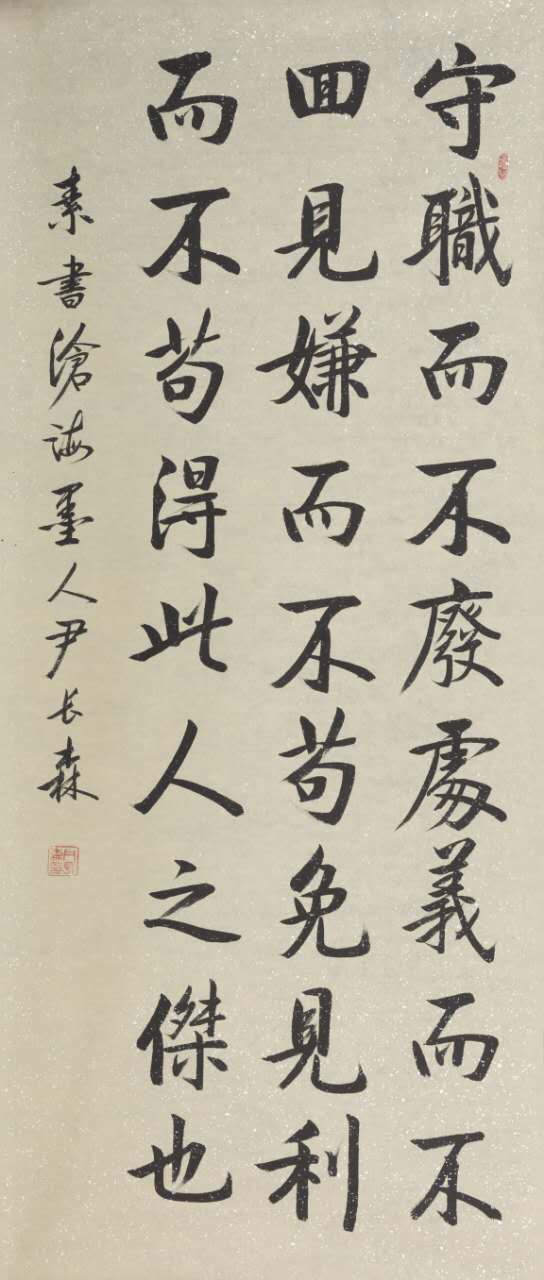 守職而不廢處義而不
回見嫌而不苟免見利
而不苟得此人之傑也
素書滄海墨人尹长森